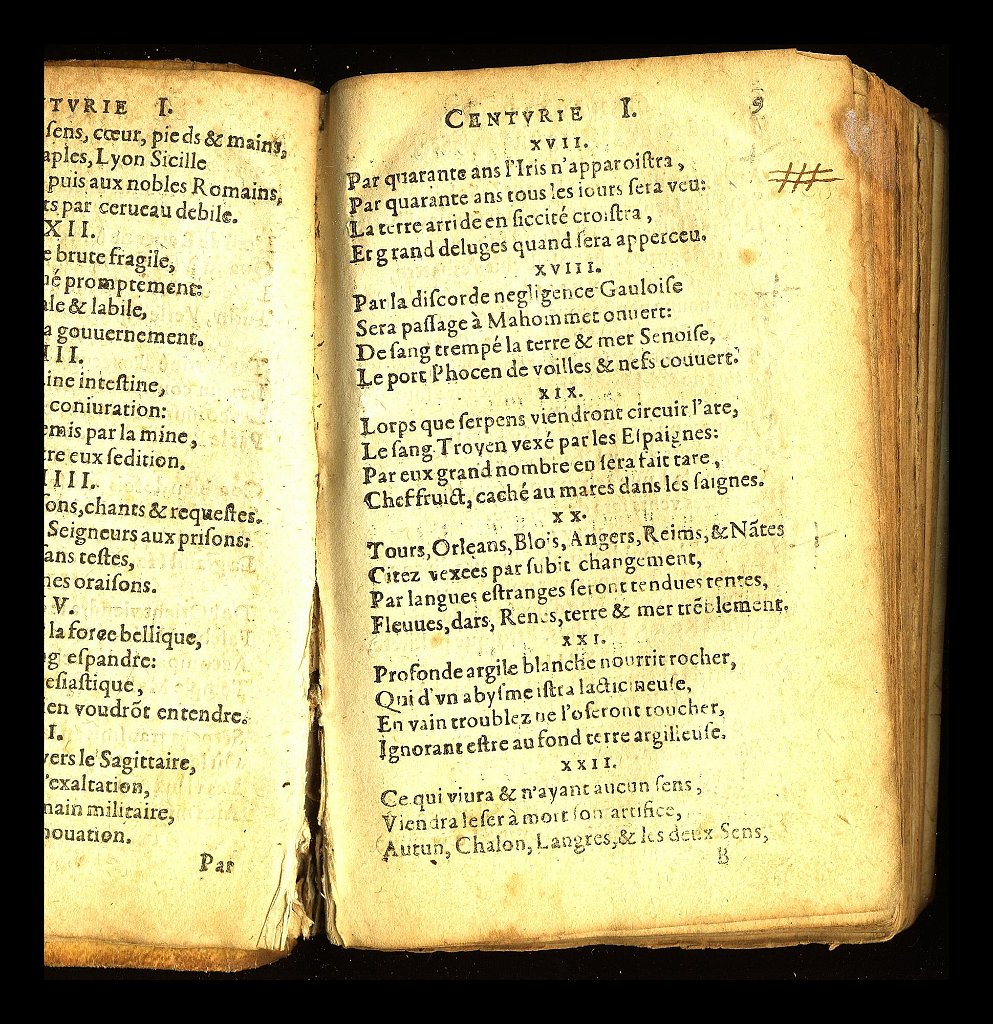 NTVRIE I.
sens, cœur, pieds & mains,
aples, Lyon Sicille
puis aux nobles Romains,
ts par cerueau debile.
XII.
e brute fragile,
né promptement:
ale & labile,
a gouuernement.
III.
ine intestine,
coniuration:
emis par la mine,
tre eux sedition.
IIII.
sons, chants & requestes.
Seigneurs aux prisons:
ans testes,
nes oraisons.
V.
la force bellique,
ng espandre:
esiastique,
en voudrõt entendre.
I.
vers le Sagittaire,
'exaltation,
main militaire,
nouation.
Par
CENTVRIE I. 9
XVII.
Par quarante ans l'Iris n'apparoistra,
Par quarante ans tous les iours sera veu:
La terre arride en siccité croistra,
Et grand deluges quand sera apperceu.
XVIII.
Par la discorde negligence Gauloise
Sera passage à Mahommet onuert:
De sang trempé la terre & mer Senoise,
Le port Phocen de voilles & nefs couuert.
XIX.
Lorps que serpens viendront circuir l'are,
Le sang Troyen vexé par les Espaignes:
Par eux grand nombre en sera fait tare,
Chef fruict, caché au mares dans les saignes.
XX.
Tours, Orleans, Blois, Angers, Reims, & Nãtes
Citez vexees par subit changement,
Par langues estranges seront tendues tentes,
Fleuues, dars, Renes, terre & mer trẽblement.
XXI.
Profonde argile blanche nourrit rocher,
Qui d'vn abysme istra lacticineuse,
En vain troublez ne l'oseront toucher,
Ignorant estre au fond terre argilieuse.
XXII.
Ce qui viura & n'ayant aucun sens,
Viendra leser à mort son artifice,
Autun, Chalon, Langres, & les deux Sens,
B